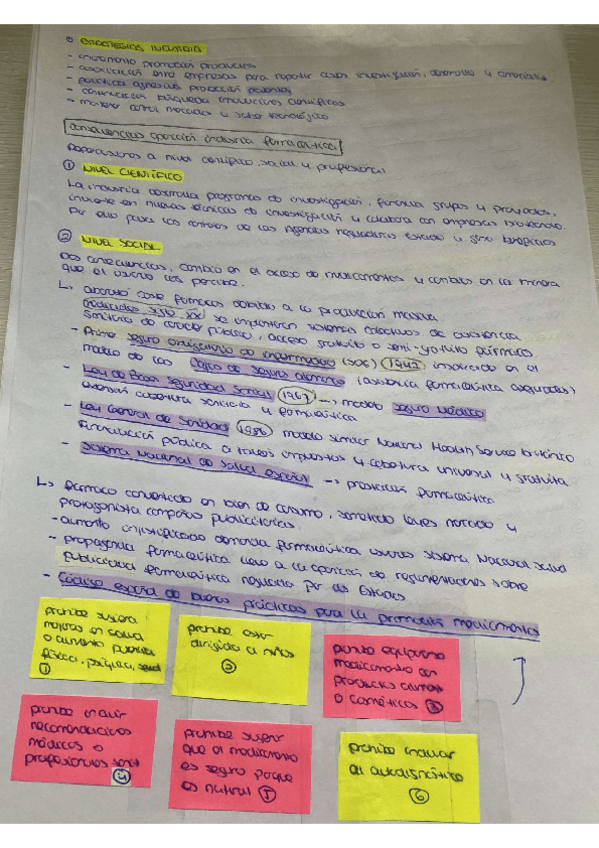 ESTRATEGIAS INDUSTRIA
- incremento promoción productos
- asociación entre empresas para repartir costes investigación, desarrollo y
- política agresiva protección patentes
- búsqueda innovaciones científicas
- control mercados y saber tecnológico
consecuencias aparición industria farmacéutica
Repercusiones a nivel científico, social y profesional
① NIVEL CIENTÍFICO
La industria desarrolla programas de investigación, financia grupos y proyectos,
invierte en nuevas técnicas de investigación y colabora con empresas
Por ello pasa los controles de las agencias reguladoras estado y
② NIVEL SOCIAL
Dos consecuencias, cambio en el acceso de medicamentos y cambios en la manera
que el usuario los percibe.
↳ coste fármacos debido a la producción masiva
mediados siglo XX se implantan sistemas colectivos de asistencia
sanitaria de carácter público, acceso gratuito o semi-gratuito
- Primer seguro obligatorio de enfermedad (SOE) 1942 inspirado en el
modelo de las Cajas de Seguro alemanas (asistencia farmacéutica asegurados)
- Ley de Base Seguridad Social 1967 → modelo Seguro Médico
cobertura sanitaria y farmacéutica
- Ley General de Sanidad 1986 modelo similar National Health Service británico
financiación pública a través impuestos y cobertura universal y gratuita
- Sistema Nacional de Salud español → prestación farmacéutica
↳ fármaco convertido en bien de consumo, sometido leyes mercado y
protagonista campañas publicitarias.
- aumento injustificado demanda farmacéutica usuarios Sistema Nacional Salud
- propaganda farmacéutica llevó a la aparición de reglamentaciones sobre
publicidad farmacéutica regulada por los Estados
- Código español de buenas prácticas para la promoción medicamentos
prohibe sugerir
mejoras en salud
o aumento
física, psíquica, sexual
①
prohibe estar
dirigido a niños
②
prohibe equiparar
medicamento con
productos
o cosméticos ③
prohibe incluir
recomendaciones
médicos o
profesionales
④
prohibe sugerir
que el medicamento
es seguro porque
es natural ⑤
prohibe
al autodiagnóstico
⑥